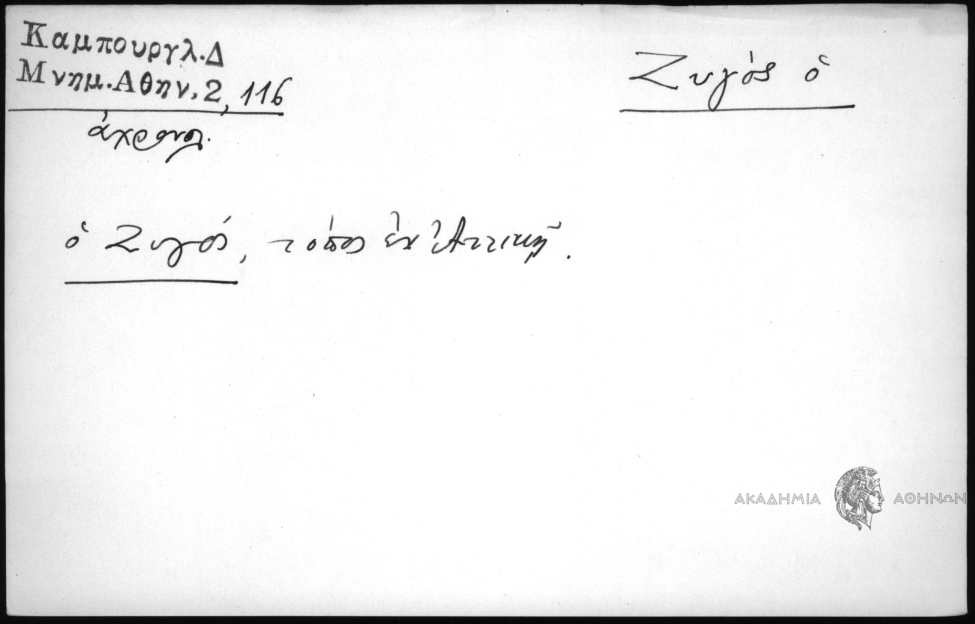 Καμπουργλ.Δ
Μνημ.Αθην.2, 116
ἀχρονολ.
Ζυγός ὁ
ὁ Ζυγός, τόπος ἐν Ἀττικῇ.
ΑΚΑΔΗΜΙΑ ΑΘΗΝΩΝ